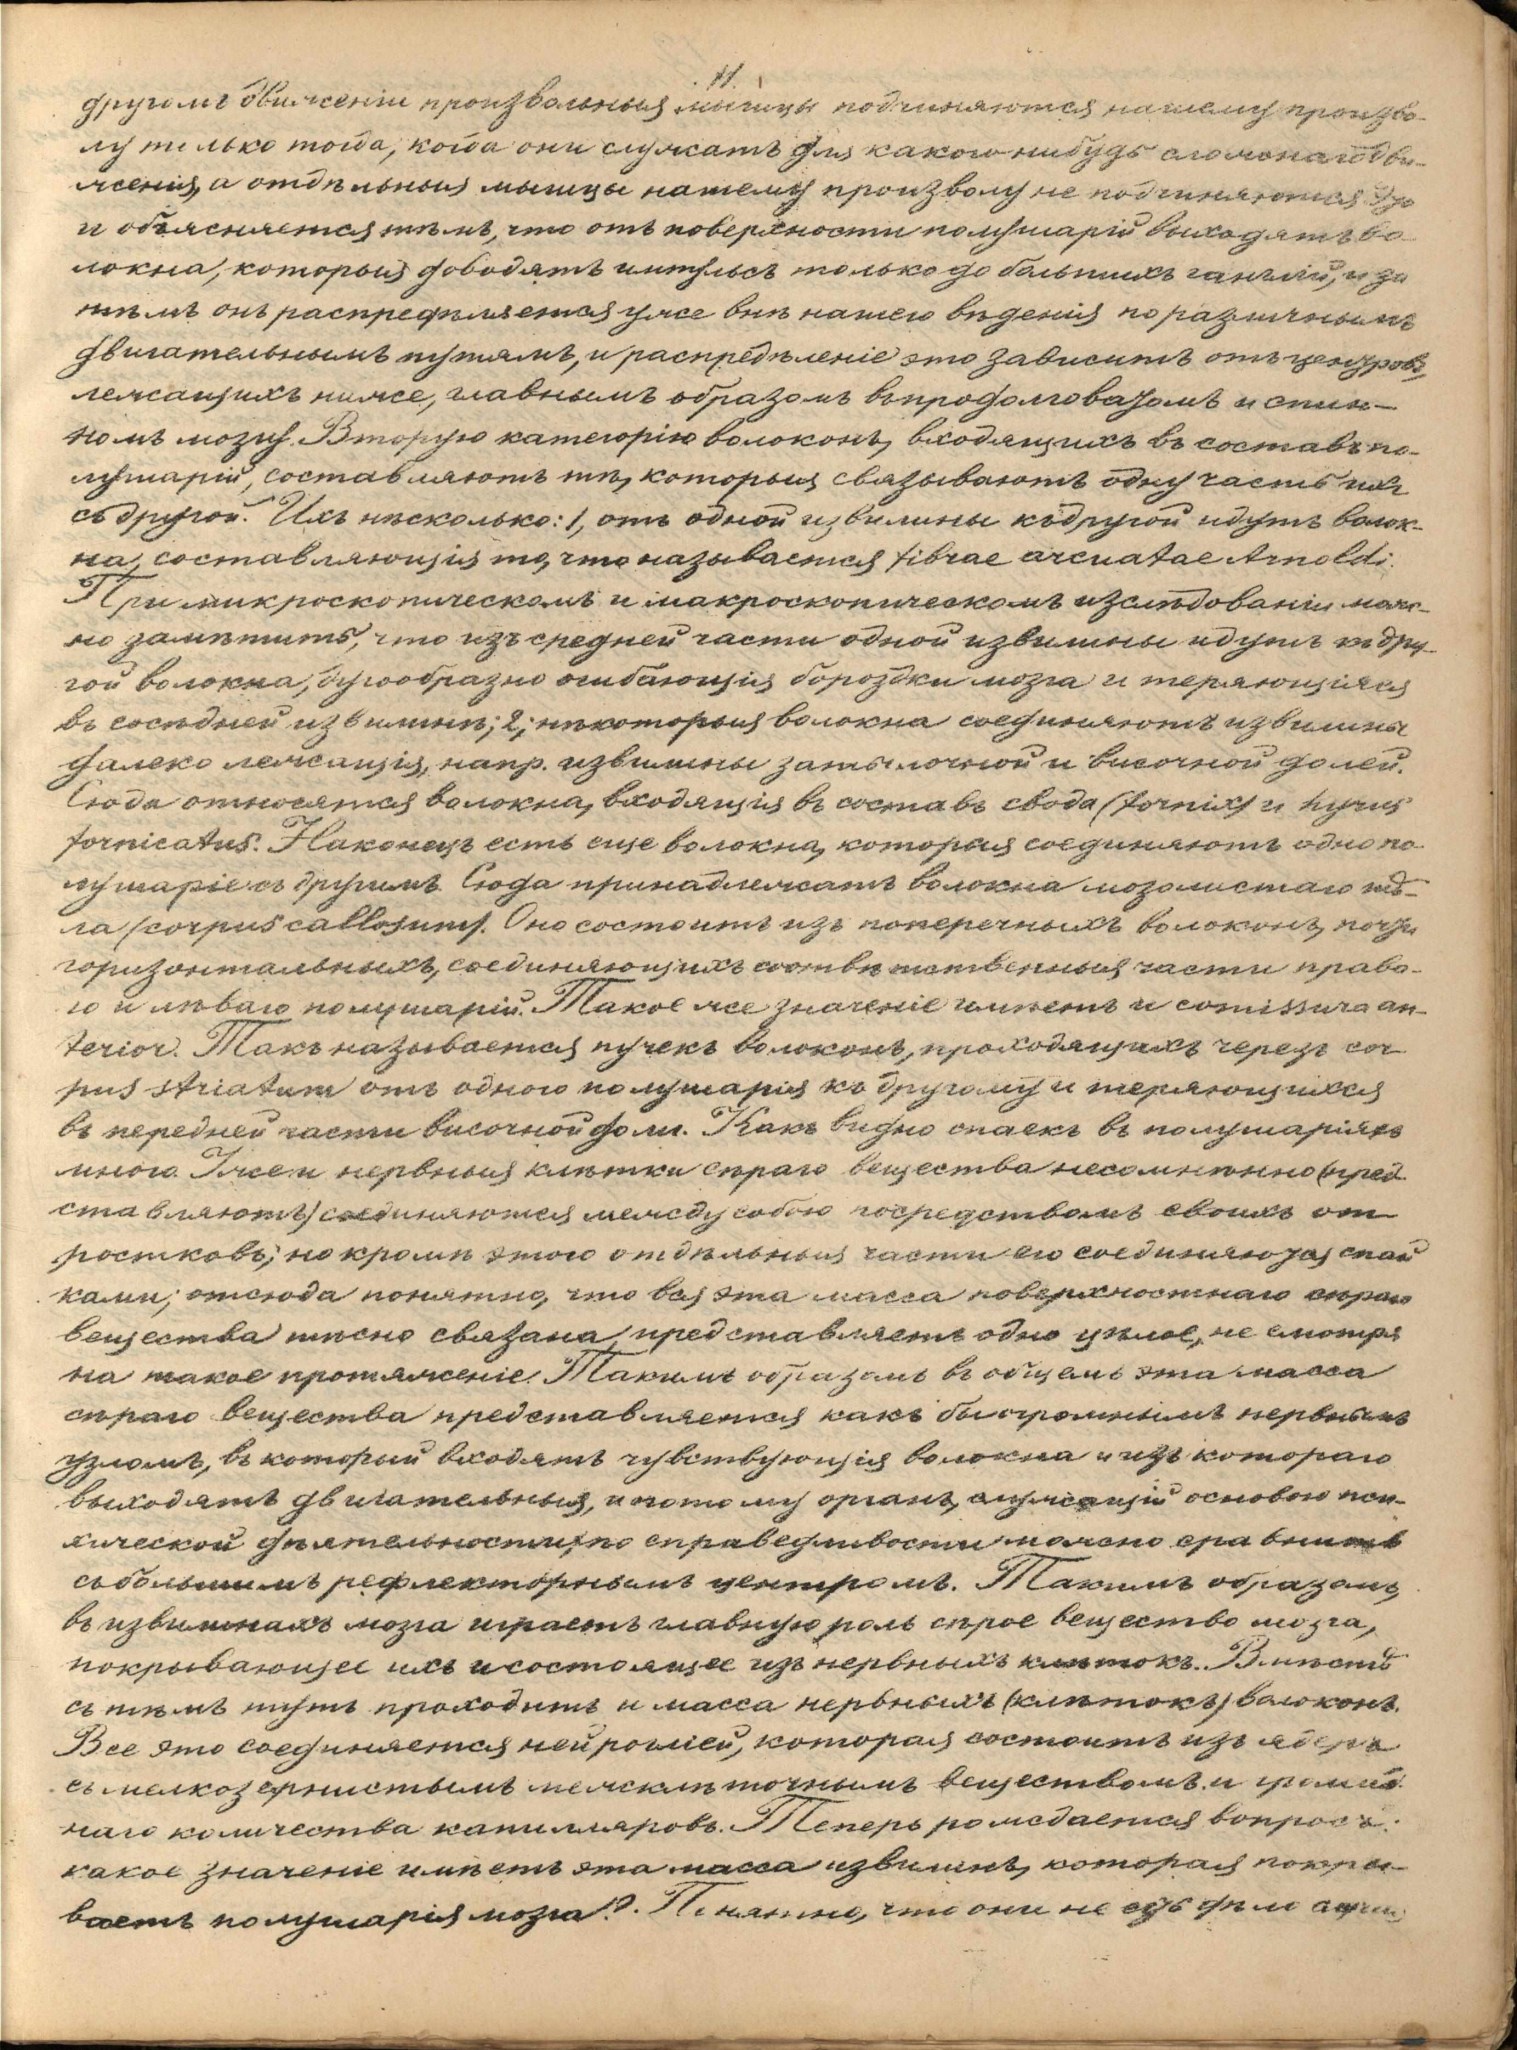 11.
другомъ движеніи произвольныя мышцы подчиняются нашему произво-
лу только тогда, когда они служатъ для какого нибудь сложнаго дви-
женія, а отдѣльныя мышцы нашему произволу не подчиняются. Это
и объясняется тѣмъ, что отъ поверхности полушарій выходятъ во-
локна, которыя доводятъ импульсъ только до большихъ ганглій, и за
тѣмъ онъ распредѣляется уже внѣ нашего вѣденія по различнымъ
двигательнымъ путямъ, и распредѣленіе это зависитъ отъ центровъ,
лежащихъ ниже, главнымъ образомъ въ продолговатомъ и спин-
номъ мозгу. Вторую категорію волоконъ, входящихъ въ составъ по-
лушарій, составляютъ тѣ, которыя связываютъ одну часть ихъ
съ другой. Ихъ нѣсколько: 1, отъ одной извилины къ другой идутъ волок-
на, составляющія то, что называется fibrae arcuatae Arnoldi.
При микроскопическомъ и макроскопическомъ изслѣдованіи мож-
но замѣтить, что изъ средней части одной извилины идутъ къ дру-
гой волокна, дугообразно огибающія бороздки мозга и теряющіяся
въ сосѣдней извилинѣ; 2, нѣкоторыя волокна соединяютъ извилины
далеко лежащія, напр. извилины затылочной и височной долей.
Сюда относятся волокна, входящія въ составъ свода (fornix) и hyrus
fornicatus. Наконецъ есть еще волокна, которыя соединяютъ одно по
лушаріе съ другимъ. Сюда принадлежатъ волокна мозолистаго тѣ-
ла (corpus callosum). Оно состоитъ изъ поперечныхъ волоконъ, почти
горизонтальныхъ, соединяющихъ соотвѣтственныя части право-
го и лѣваго полушарій. Такое же значеніе имѣетъ и comissura an-
terior. Такъ называется пучекъ волоконъ, проходящихъ черезъ cor
pus striatum отъ одного полушарія къ другому и теряющихся
въ передней части височной доли. Какъ видно спаекъ въ полушаріяхъ
много. Уже и нервныя клѣтки сѣраго вещества несомнѣнно (пред
ставляютъ) соединяются между собою посредствомъ своихъ от
ростковъ; но кромѣ этого отдѣльныя части его соединяются спай
ками; отсюда понятно, что вся эта масса поверхностнаго сѣраго
вещества тѣсно связана, представляетъ одно цѣлое, не смотря
на такое протяженіе. Такимъ образомъ въ общемъ эта масса
сѣраго вещества представляется какъ бы огромнымъ нервнымъ
узломъ, въ который входятъ чувствующія волокна и изъ котораго
выходятъ двигательныя, и потому органъ, служащій основою пси-
хической дѣятельности, по справедливости можно сравнить
съ большимъ рефлекторнымъ центромъ. Такимъ образомъ,
въ извилинахъ мозга играетъ главную роль сѣрое вещество мозга,
покрывающее ихъ и состоящее изъ нервныхъ клѣтокъ. Вмѣстѣ
съ тѣмъ тутъ проходитъ и масса нервныхъ (клѣтокъ) волоконъ.
Все это соединяется нейрогліей, которая состоитъ изъ ядеръ
съ мелкозернистымъ межклѣточнымъ веществомъ и громад
наго количества капилляровъ. Теперь рождается вопросъ:
какое значеніе имѣетъ эта масса извилинъ, которая покры-
ваетъ полушарія мозга?. Понятно, что они не суть дѣло